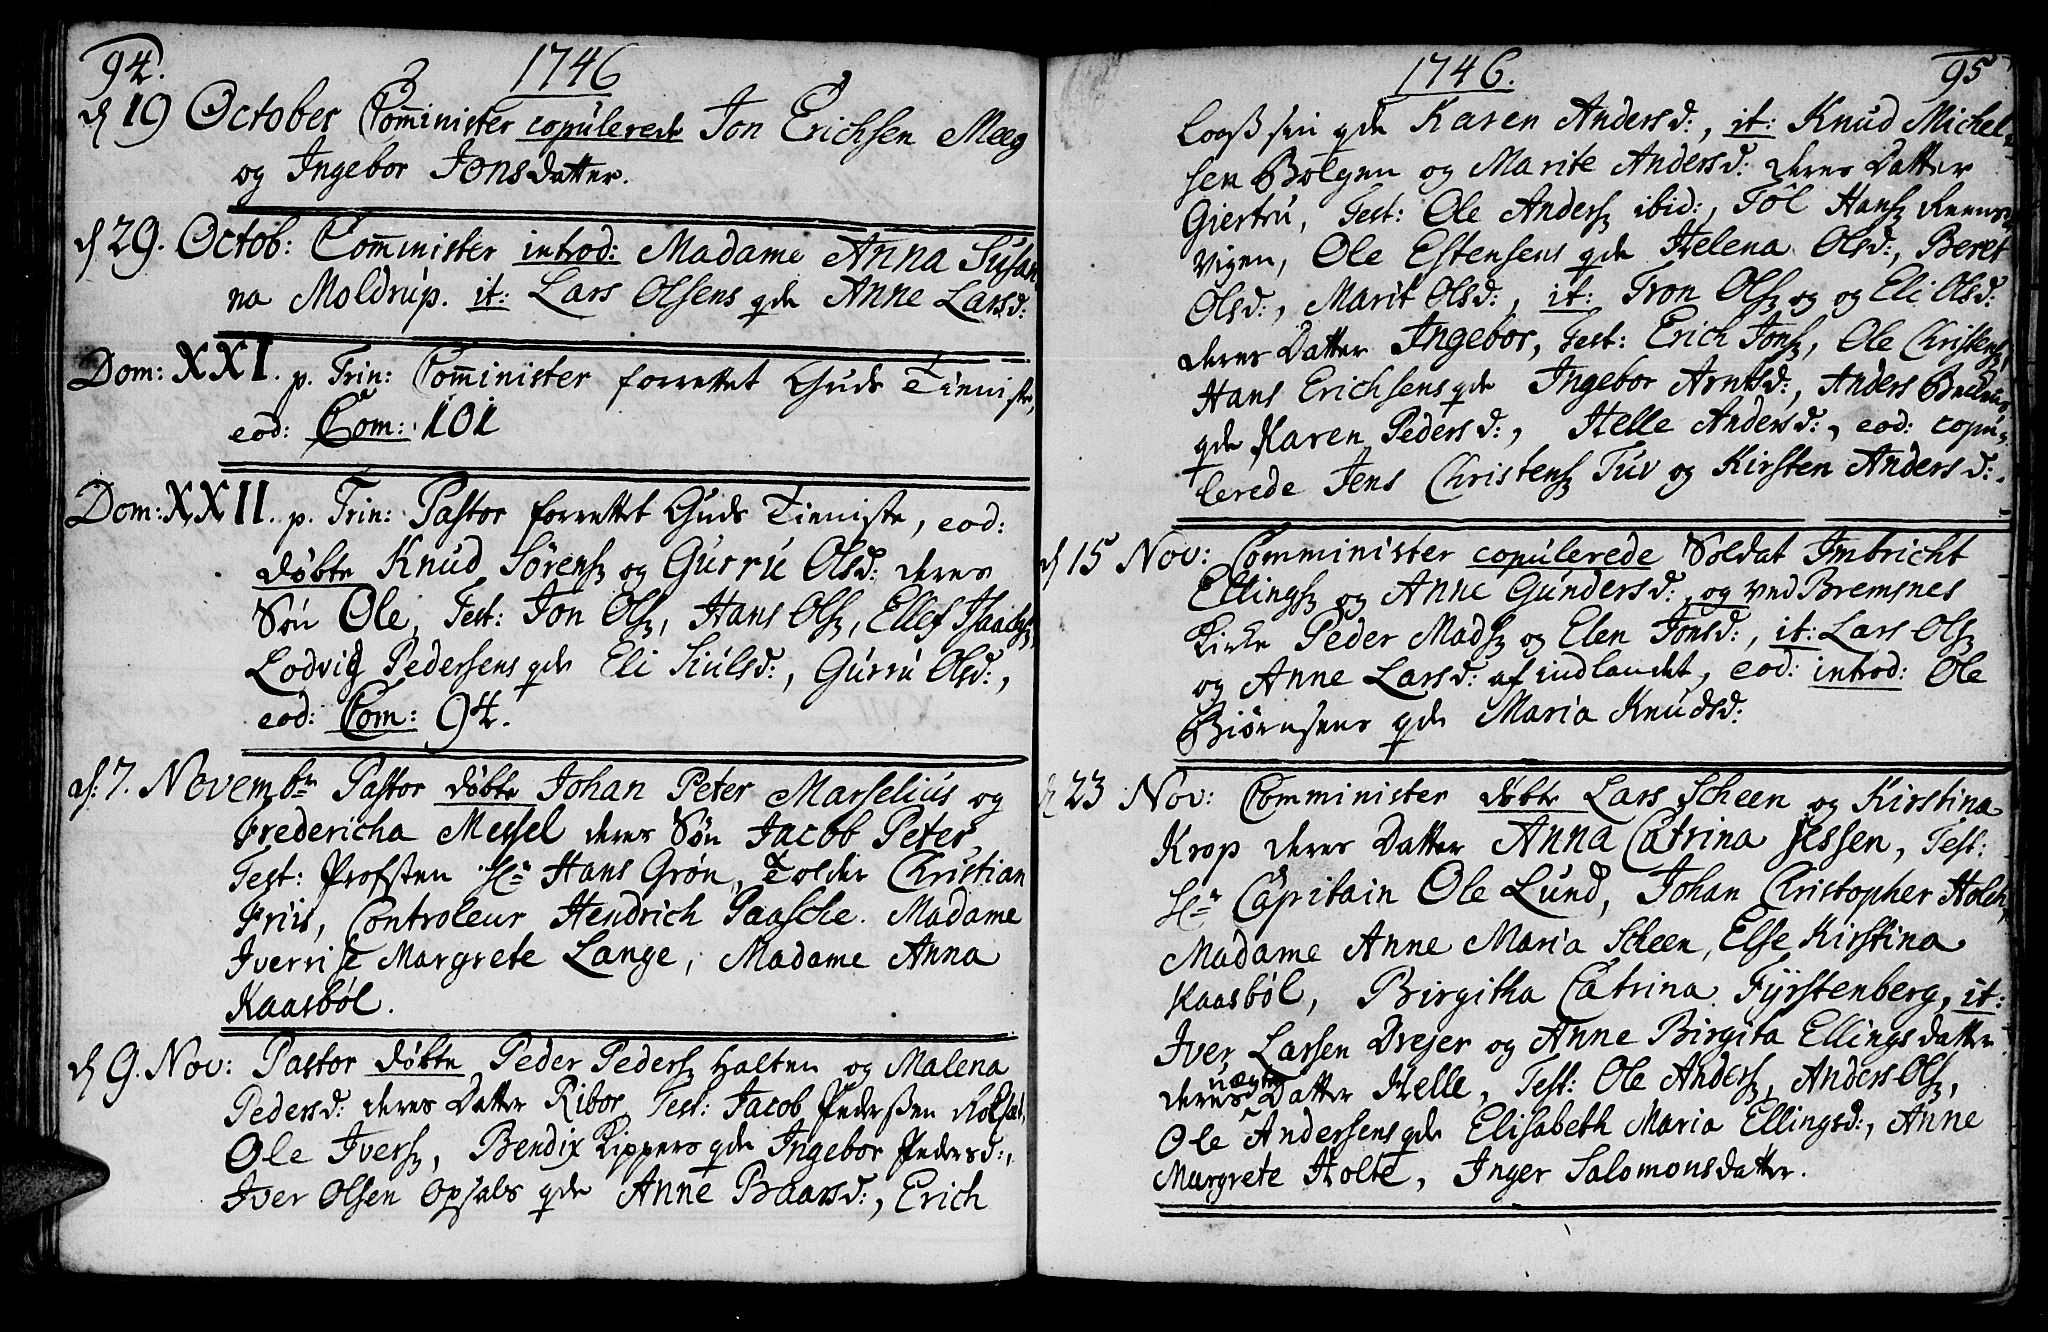 94.
1746
d 19 October Com̄inister copulerede Jon Erichsen Meeg
og Ingebor Jonsdatter.
d 29. Octob: Com̄inister introd: Madame Anna Susan
na Moldrup. it: Lars Olsens qde Anne Larsd:
Dom: XXI. p. Trin: Com̄inister forrettet Guds Tieniste,
eod: Com: 101
Dom: XXII. p. Trin: Pastor forrettet Guds Tieniste, eod:
døbte Knud Sörens og Gurru Olsd: deres
Søn Ole, Test: Jon Ols, Hans Ols, Ellef Isaachs,
Lodvig Pedersens qde Eli Siulsd:, Gurru Olsd:,
eod: Com: 94.
d: 7. Novembr Pastor døbte Johan Peter Marselius og
Fredericha Messel deres Søn Jacob Peter,
Test: Profsten Hr Hans Grøn, Tolder Christian
Friis, Controleur Hendrich Paasche. Madame
Iverrise Margrete Lange, Madame Anna
Kaasbøl.
d 9. Nov: Pastor døbte Peder Peders Halten og Malena
Pedersd: deres Datter Ribor, Test: Jacob Pederssen
Ole Ivers, Bendix Kippers qde Ingebor Pedersd:,
Iver Olsen Opsals qde Anne Baarsd:, Erich
1746.
95
qde Karen Andersd:, it: Knud Michel
sen Bolgen og Marite Andersd: deres Datter
Giertru, Test: Ole Anders ibid:, Tøl Hans
Vigen, Ole Estensens qde Helena Olsd:, Beret
Olsd:, Marit Olsd:, it: Tron Ols og og Eli Olsd:
deres Datter Ingebor, Test: Erich Jons, Ole Christens,
Hans Erichsens qde Ingebor Arntsd:, Anders
qde Karen Pedersd:, Helle Andersd:, eod: copu
lerede Jens Christens Tuv og Kirsten Andersd:.
d 15 Nov: Comminister copulerede Soldat Imbricht
Ellings og Anne Gundersd:, og ved Bremsnes
Kirke Peder Mads og Elen Jonsd:, it: Lars Ols
og Anne Larsd: af indlandet, eod: introd: Ole
Biørnsens qde Maria Knudsd:
d 23 Nov: Comminister døbte Lars Scheen og Kirstina
Krop deres Datter Anna Catrina Jessen, Test:
Hr Capitain Ole Lund, Johan Christopher Holck,
Madame Anne Maria Scheen, Else Kirstina
Kaasbøl, Birgitha Catrina Fyrstenberg, it:
Iver Larsen Drejer og Anne Birgita Ellingsdatter
deres uægte Datter Helle, Test: Ole Anders, Anders Ols,
Ole Andersens qde Elisabeth Maria Ellingsd:, Anne
Margrete Holte, Inger Salomonsdatter.